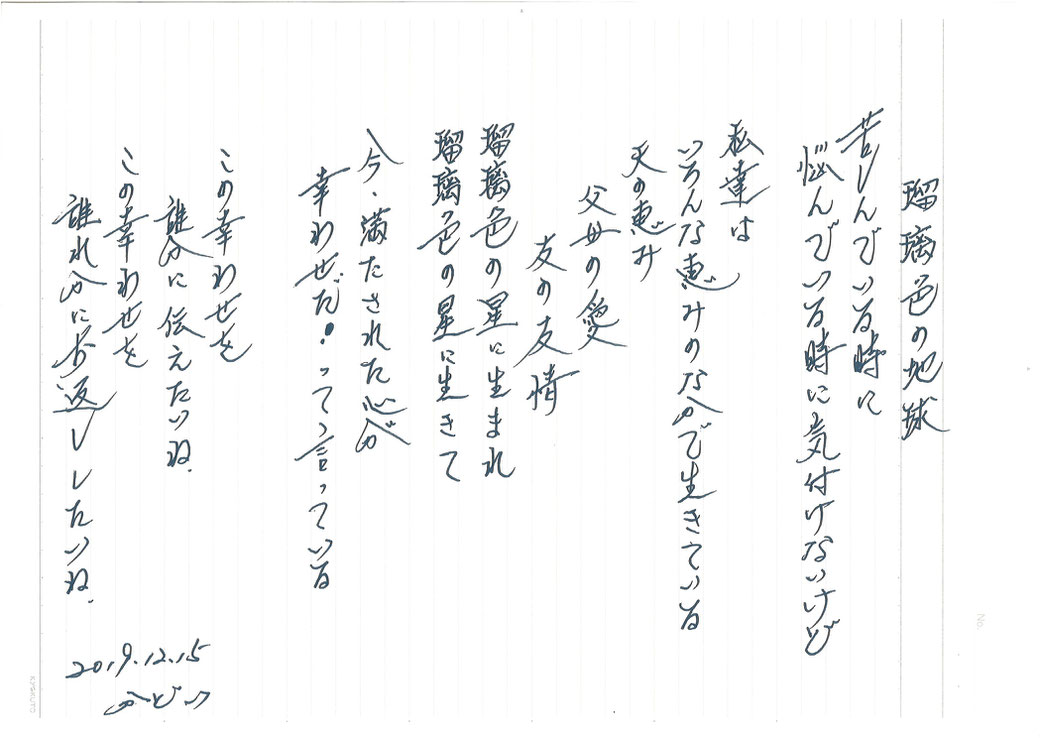 瑠璃色の地球
苦しんでいる時に
悩んでいる時に気付けないけど
私達は
いろんな恵みのなかで生きている
天の恵み
父母の愛
友の友情
瑠璃色の星に生まれ
瑠璃色の星に生きて
今、満たされた心が
幸わせだ!って言っている
この幸わせを
誰かに伝えたいね.
この幸わせを
誰れかにお返ししたいね.
2019.12.15
No.